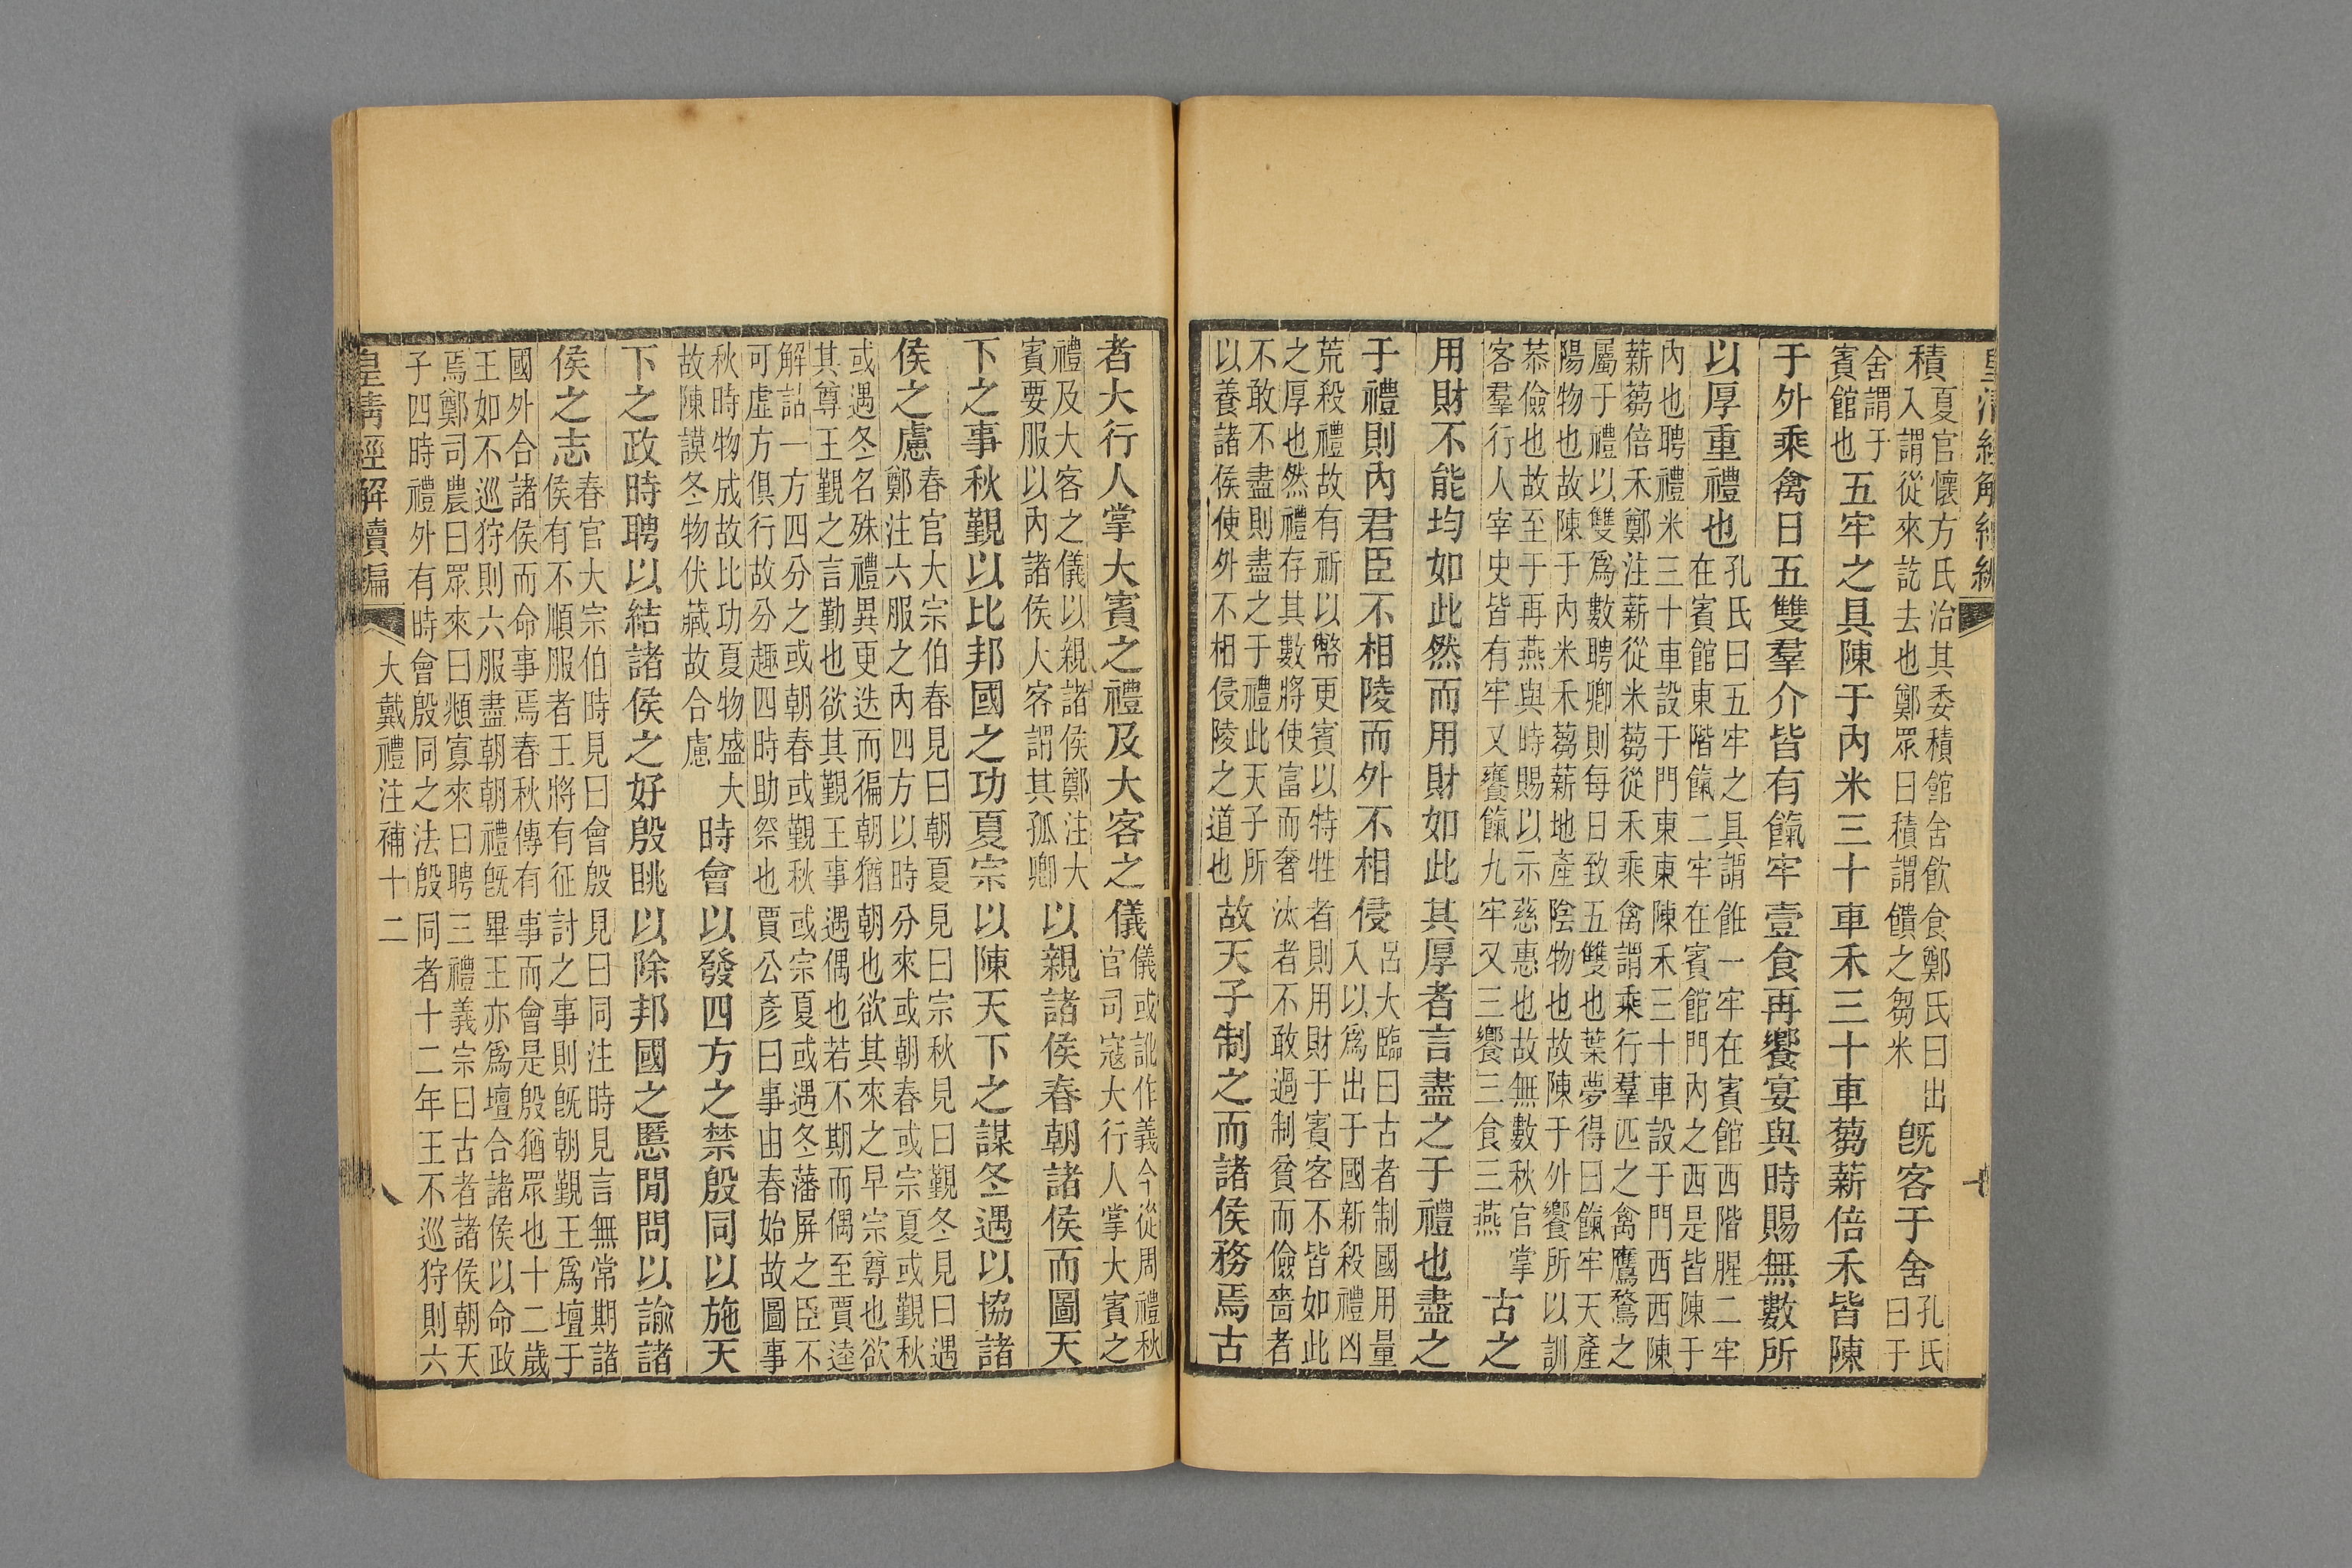 皇清經解續編
積夏官懷方氏治其委積館舍飮食鄭氏曰出入謂從來訖去也鄭眾曰積謂饋之芻米旣客于舍孔氏曰于
舍謂于賓館也五牢之具陳于內米三十車禾三十車蒭薪倍禾皆陳
于外乘禽日五雙羣介皆有餼牢壹食再饗宴與時賜無數所
以厚重禮也孔氏曰五牢之具謂飪一牢在賓館西階腥二牢在賓館東階餼二牢在賓館門內之西是皆陳于
內也聘禮米三十車設于門東東陳禾三十車設于門西西陳薪蒭倍禾鄭注薪從米蒭從禾乘禽謂乘行羣匹之禽鷹鶩之
屬于禮以雙爲數聘卿則每日致五雙也葉夢得曰餼牢天產陽物也故陳于內米禾蒭薪地產陰物也故陳于外饗所以訓
恭儉也故至于再燕與時賜以示慈惠也故無數秋官掌客羣行人宰史皆有牢又饔餼九牢又三饗三食三燕古之
用財不能均如此然而用財如此其厚者言盡之于禮也盡之
于禮則內君臣不相陵而外不相侵呂大臨曰古者制國用量入以爲出于國新殺禮凶
荒殺禮故有祈以幣更賓以特牲者則用財于賓客不皆如此之厚也然禮存其數將使富而奢汰者不敢過制貧而儉嗇者
不敢不盡則盡之于禮此天子所以養諸侯使外不相侵陵之道也故天子制之而諸侯務焉古
者大行人掌大賓之禮及大客之儀儀或訛作義今從周禮秋官司寇大行人掌大賓之
禮及大客之儀以親諸侯鄭注大賓要服以內諸侯大客謂其孤卿以親諸侯春朝諸侯而圖天
下之事秋覲以比邦國之功夏宗以陳天下之謀冬遇以協諸
侯之慮春官大宗伯春見曰朝夏見曰宗秋見曰覲冬見曰遇鄭注六服之內四方以時分來或朝春或宗夏或覲秋
或遇冬名殊禮異更迭而徧朝猶朝也欲其來之早宗尊也欲其尊王覲之言勤也欲其覲王事遇偶也若不期而偶至賈逵
解詁一方四分之或朝春或覲秋或宗夏或遇冬藩屏之臣不可虛方俱行故分趣四時助祭也賈公彥曰事由春始故圖事
秋時物成故比功夏物盛大故陳謨冬物伏藏故合慮時會以發四方之禁殷同以施天
下之政時聘以結諸侯之好殷眺以除邦國之慝閒問以諭諸
侯之志春官大宗伯時見曰會殷見曰同注時見言無常期諸侯有不順服者王將有征討之事則旣朝覲王爲壇于
國外合諸侯而命事焉春秋傳有事而會是殷猶眾也十二歲王如不巡狩則六服盡朝朝禮旣畢王亦爲壇合諸侯以命政
焉鄭司農曰眾來曰頫寡來曰聘三禮義宗曰古者諸侯朝天子四時禮外有時會殷同之法殷同者十二年王不巡狩則六
皇清經解續編 大戴禮注補十二 八